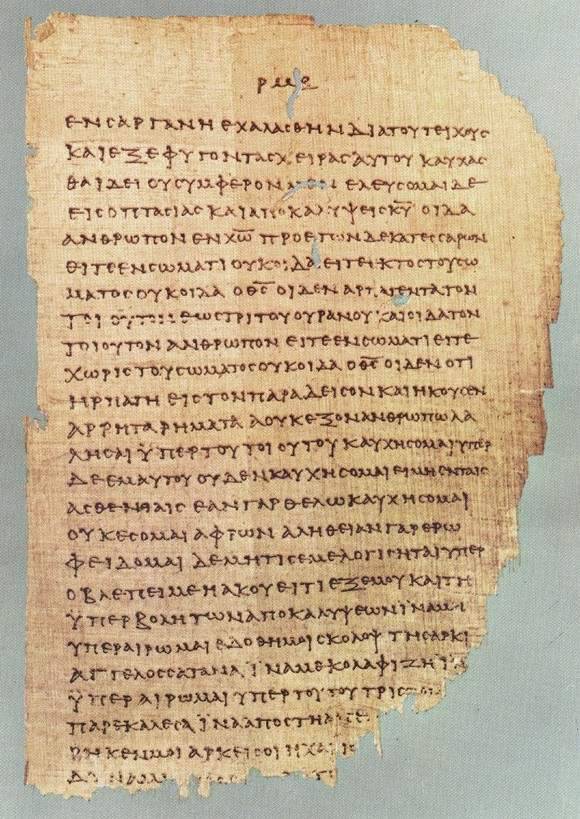 ρμε
ΕΝ ΣΑΡΓΑΝΗ ΕΧΑΛΑΣΘΗΝ ΔΙΑ ΤΟΥ ΤΕΙΧΟΥΣ
ΚΑΙ ΕΞΕΦΥΓΟΝ ΤΑΣ ΧΕΙΡΑΣ ΑΥΤΟΥ ΚΑΥΧΑΣ
ΘΑΙ ΔΕΙ ΟΥ ΣΥΜΦΕΡΟΝ ΕΛΕΥΣΟΜΑΙ ΔΕ
ΕΙΣ ΟΠΤΑΣΙΑΣ ΚΑΙ ΑΠΟΚΑΛΥΨΕΙΣ Κ̅Υ̅ ΟΙΔΑ
ΑΝΘΡΩΠΟΝ ΕΝ Χ̅Ω̅ ΠΡΟ ΕΤΩΝ ΔΕΚΑΤΕΣΣΑΡΩΝ
ΕΙΤΕ ΕΝ ΣΩΜΑΤΙ ΟΥΚ ΟΙΔΑ ΕΙΤΕ ΕΚΤΟΣ ΤΟΥ ΣΩ
ΜΑΤΟΣ ΟΥΚ ΟΙΔΑ Ο Θ̅Σ̅ ΟΙΔΕΝ ΑΡΠΑΓΕΝΤΑ ΤΟΝ
ΤΟΙΟΥΤΟΝ ΕΩΣ ΤΡΙΤΟΥ ΟΥΡΑΝΟΥ ΚΑΙ ΟΙΔΑ ΤΟΝ
ΤΟΙΟΥΤΟΝ ΑΝΘΡΩΠΟΝ ΕΙΤΕ ΕΝ ΣΩΜΑΤΙ ΕΙΤΕ
ΧΩΡΙΣ ΤΟΥ ΣΩΜΑΤΟΣ ΟΥΚ ΟΙΔΑ Ο Θ̅Σ̅ ΟΙΔΕΝ ΟΤΙ
ΗΡΠΑΓΗ ΕΙΣ ΤΟΝ ΠΑΡΑΔΕΙΣΟΝ ΚΑΙ ΗΚΟΥΣΕΝ
ΑΡΡΗΤΑ ΡΗΜΑΤΑ Α ΟΥΚ ΕΞΟΝ ΑΝΘΡΩΠΩ ΛΑ
ΛΗΣΑΙ ΫΠΕΡ ΤΟΥ ΤΟΙΟΥΤΟΥ ΚΑΥΧΗΣΟΜΑΙ ΥΠΕΡ
ΔΕ ΕΜΑΥΤΟΥ ΟΥΔΕΝ ΚΑΥΧΗΣΟΜΑΙ ΕΙ ΜΗ ΕΝ ΤΑΙΣ
ΑΣΘΕΝΙΑΙΣ ΕΑΝ ΓΑΡ ΘΕΛΩ ΚΑΥΧΗΣΟΜΑΙ
ΟΥΚ ΕΣΟΜΑΙ ΑΦΡΩΝ ΑΛΗΘΕΙΑΝ ΓΑΡ ΕΡΩ
ΦΕΙΔΟΜΑΙ ΔΕ ΜΗ ΤΙΣ ΕΜΕ ΛΟΓΙΣΗΤΑΙ ΥΠΕΡ
Ο ΒΛΕΠΕΙ ΜΕ Η ΑΚΟΥΕΙ ΤΙ ΕΞ ΕΜΟΥ ΚΑΙ ΤΗ
ΫΠΕΡΒΟΛΗ ΤΩΝ ΑΠΟΚΑΛΥΨΕΩΝ ΪΝΑ ΜΗ
ΥΠΕΡΑΙΡΩΜΑΙ ΕΔΟΘΗ ΜΟΙ ΣΚΟΛΟΨ ΤΗ ΣΑΡΚΙ
ΑΓΓΕΛΟΣ ΣΑΤΑΝΑ ΪΝΑ ΜΕ ΚΟΛΑΦΙΖΗ ΪΝ
ΫΠΕΡΑΙΡΩΜΑΙ ΥΠΕΡ ΤΟΥΤΟΥ ΤΡΙΣ
ΠΑΡΕΚΑΛΕΣΑ ΪΝΑ ΑΠΟΣΤΗ Α
ΡΗΚΕΝ ΜΟΙ ΑΡΚΕΙ ΣΟΙ Η ΧΑΡΙΣ
ΔΥΝΑΜ